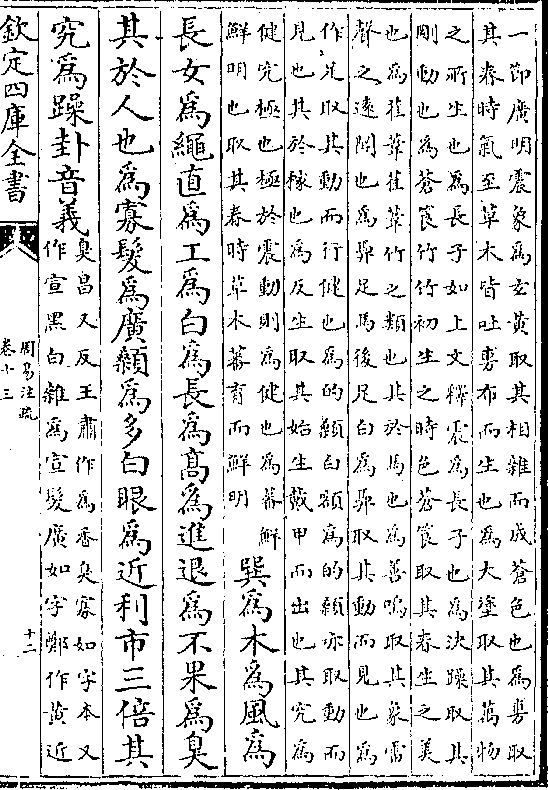 一節廣明震象為玄黄取其相雜而成蒼色也為旉取
其春時氣至草木皆吐旉布而生也為大塗取其萬物
之所生也為長子如上文釋震為長子也為決躁取其
剛動也為蒼筤竹竹初生之時色蒼筤取其春生之美
也為萑葦萑葦竹之類也其於馬也為善鳴取其象雷
聲之遠聞也為馵足馬後足白為馵取其動而見也為
作足取其動而行健也為的顙白額為的顙亦取動而
見也其於稼也為反生取其始生戴甲而出也其究為
健究極也極於震動則為健也為蕃鮮
鮮明也取其春時草木蕃育而鮮明
巽為木為風為
長女為繩直為工為白為長為髙為進退為不果為臭
其於人也為寡髮為廣顙為多白眼為近利市三倍其
究為躁卦音義
臭昌又反王肅作為香臭寡如字本又
作宣黑白雜為宣髮廣如字鄭作黄近
欽定四庫全書
周易注疏
卷十三
十二